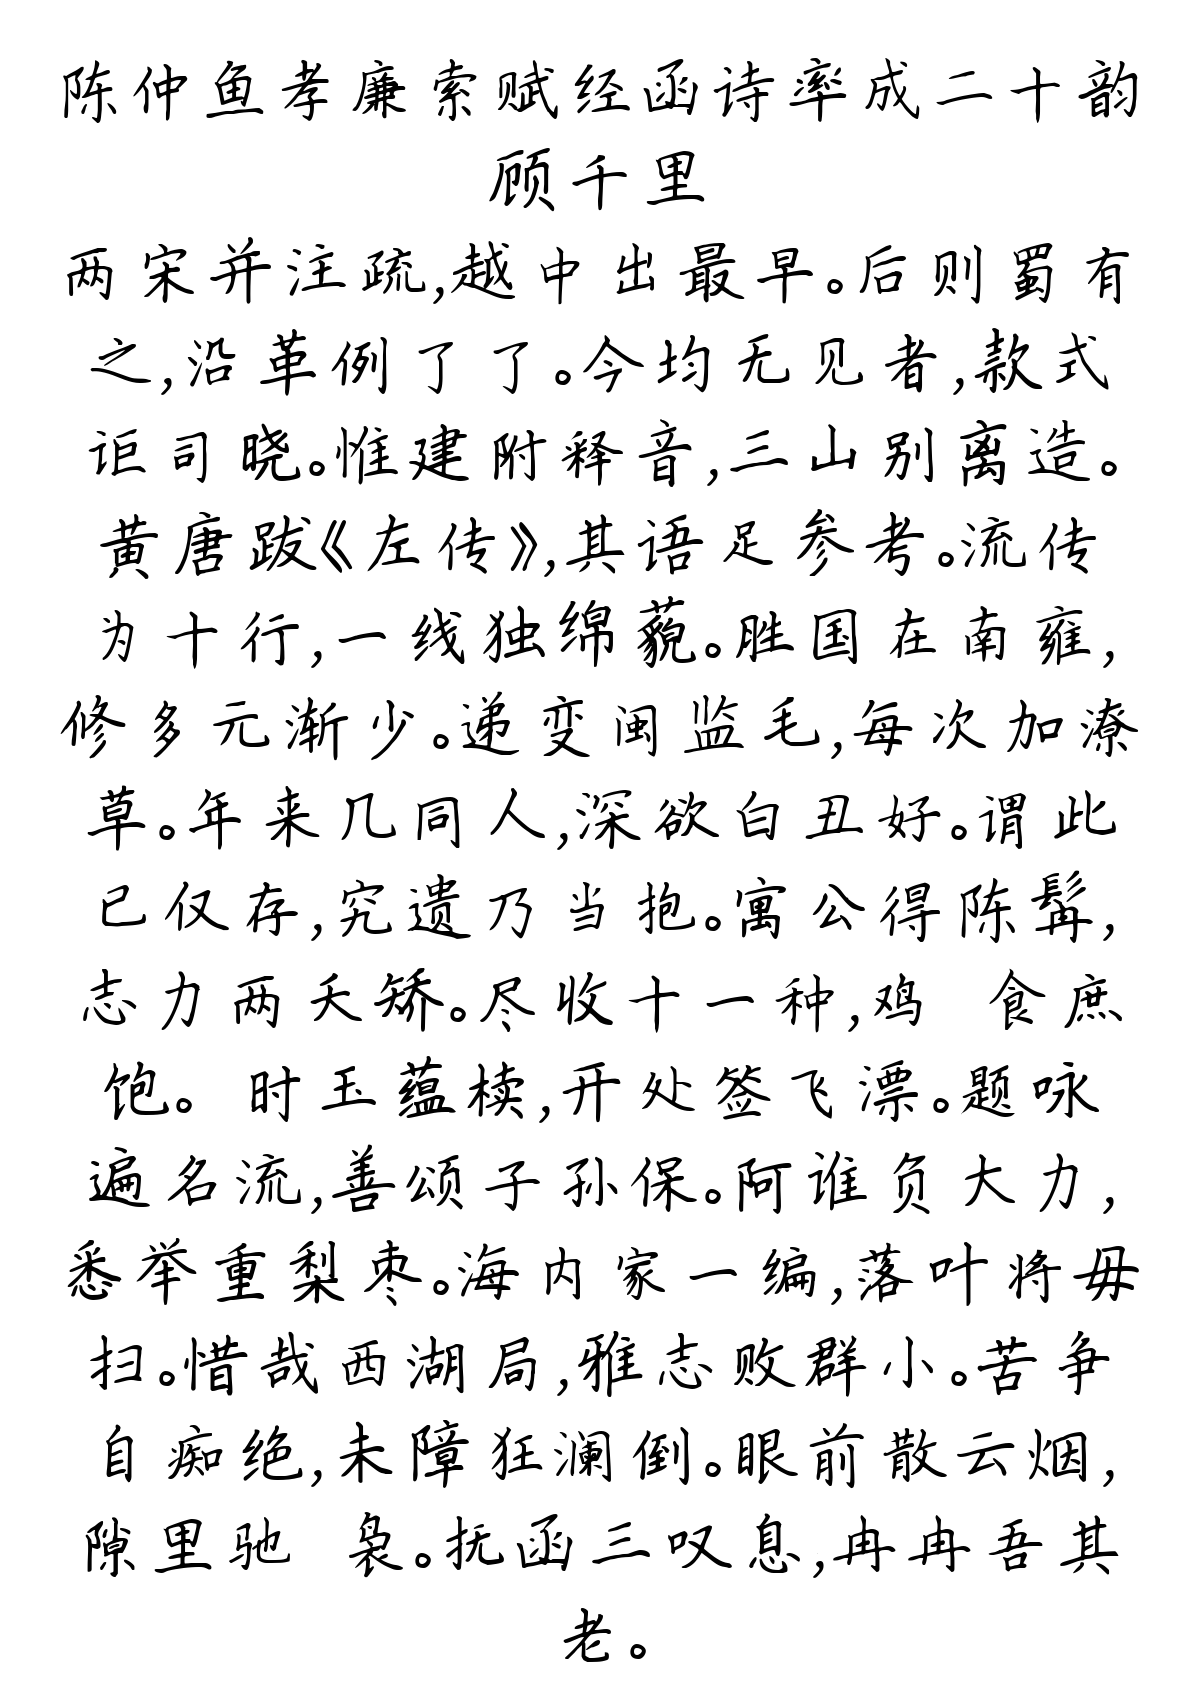 陈仲鱼孝廉索赋经函诗率成二十韵
顾千里
两宋并注疏,越中出最早。后则蜀有
之,沿革例了了。今均无见者,款式
讵司晓。惟建附释音,三山别离造。
黄唐跋《左传》,其语足参考。流传
为十行,一线独绵藐。胜国在南雍,
修多元渐少。递变闽监毛,每次加潦
草。年来几同人,深欲白丑好。谓此
已仅存,究遗乃当抱。寓公得陈髯,
志力两夭矫。尽收十一种,鸡 食庶
饱。 时玉蕴椟,开处签飞漂。题咏
遍名流,善颂子孙保。阿谁负大力,
悉举重梨枣。海内家一编,落叶将毋
扫。惜哉西湖局,雅志败群小。苦争
自痴绝,未障狂澜倒。眼前散云烟,
隙里驰 袅。抚函三叹息,冉冉吾其
老。